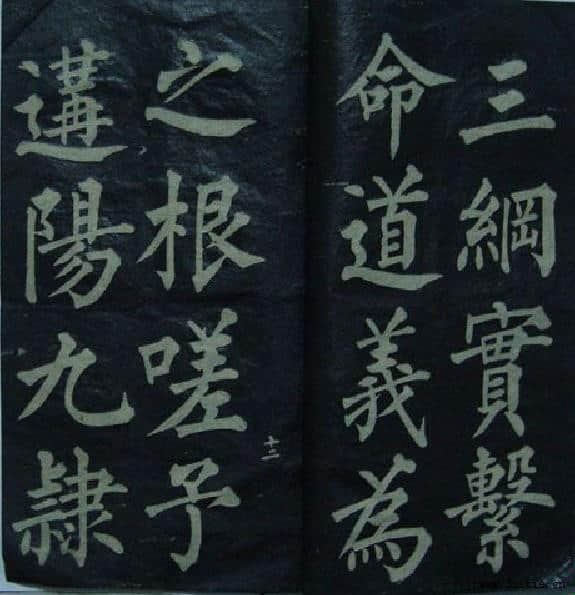 三綱實繫
命道義為
之根嗟予
遘陽九隸
十二